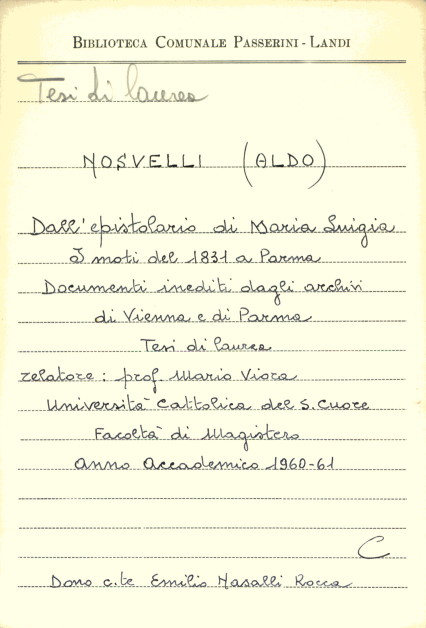 BIBLIOTECA COMUNALE PASSERINI - LANDI
Tesi di laurea
NOSVELLI (ALDO)
Dall'epistolario di Maria Luigia
I moti del 1831 a Parma
Documenti inediti dagli archivi
di Vienna e di Parma
Tesi di laurea
relatore: prof. Mario Viora
Università Cattolica del S. Cuore
Facoltà di Magistero
Anno Accademico 1960-61
C
Dono c.te Emilio Nasalli Rocca